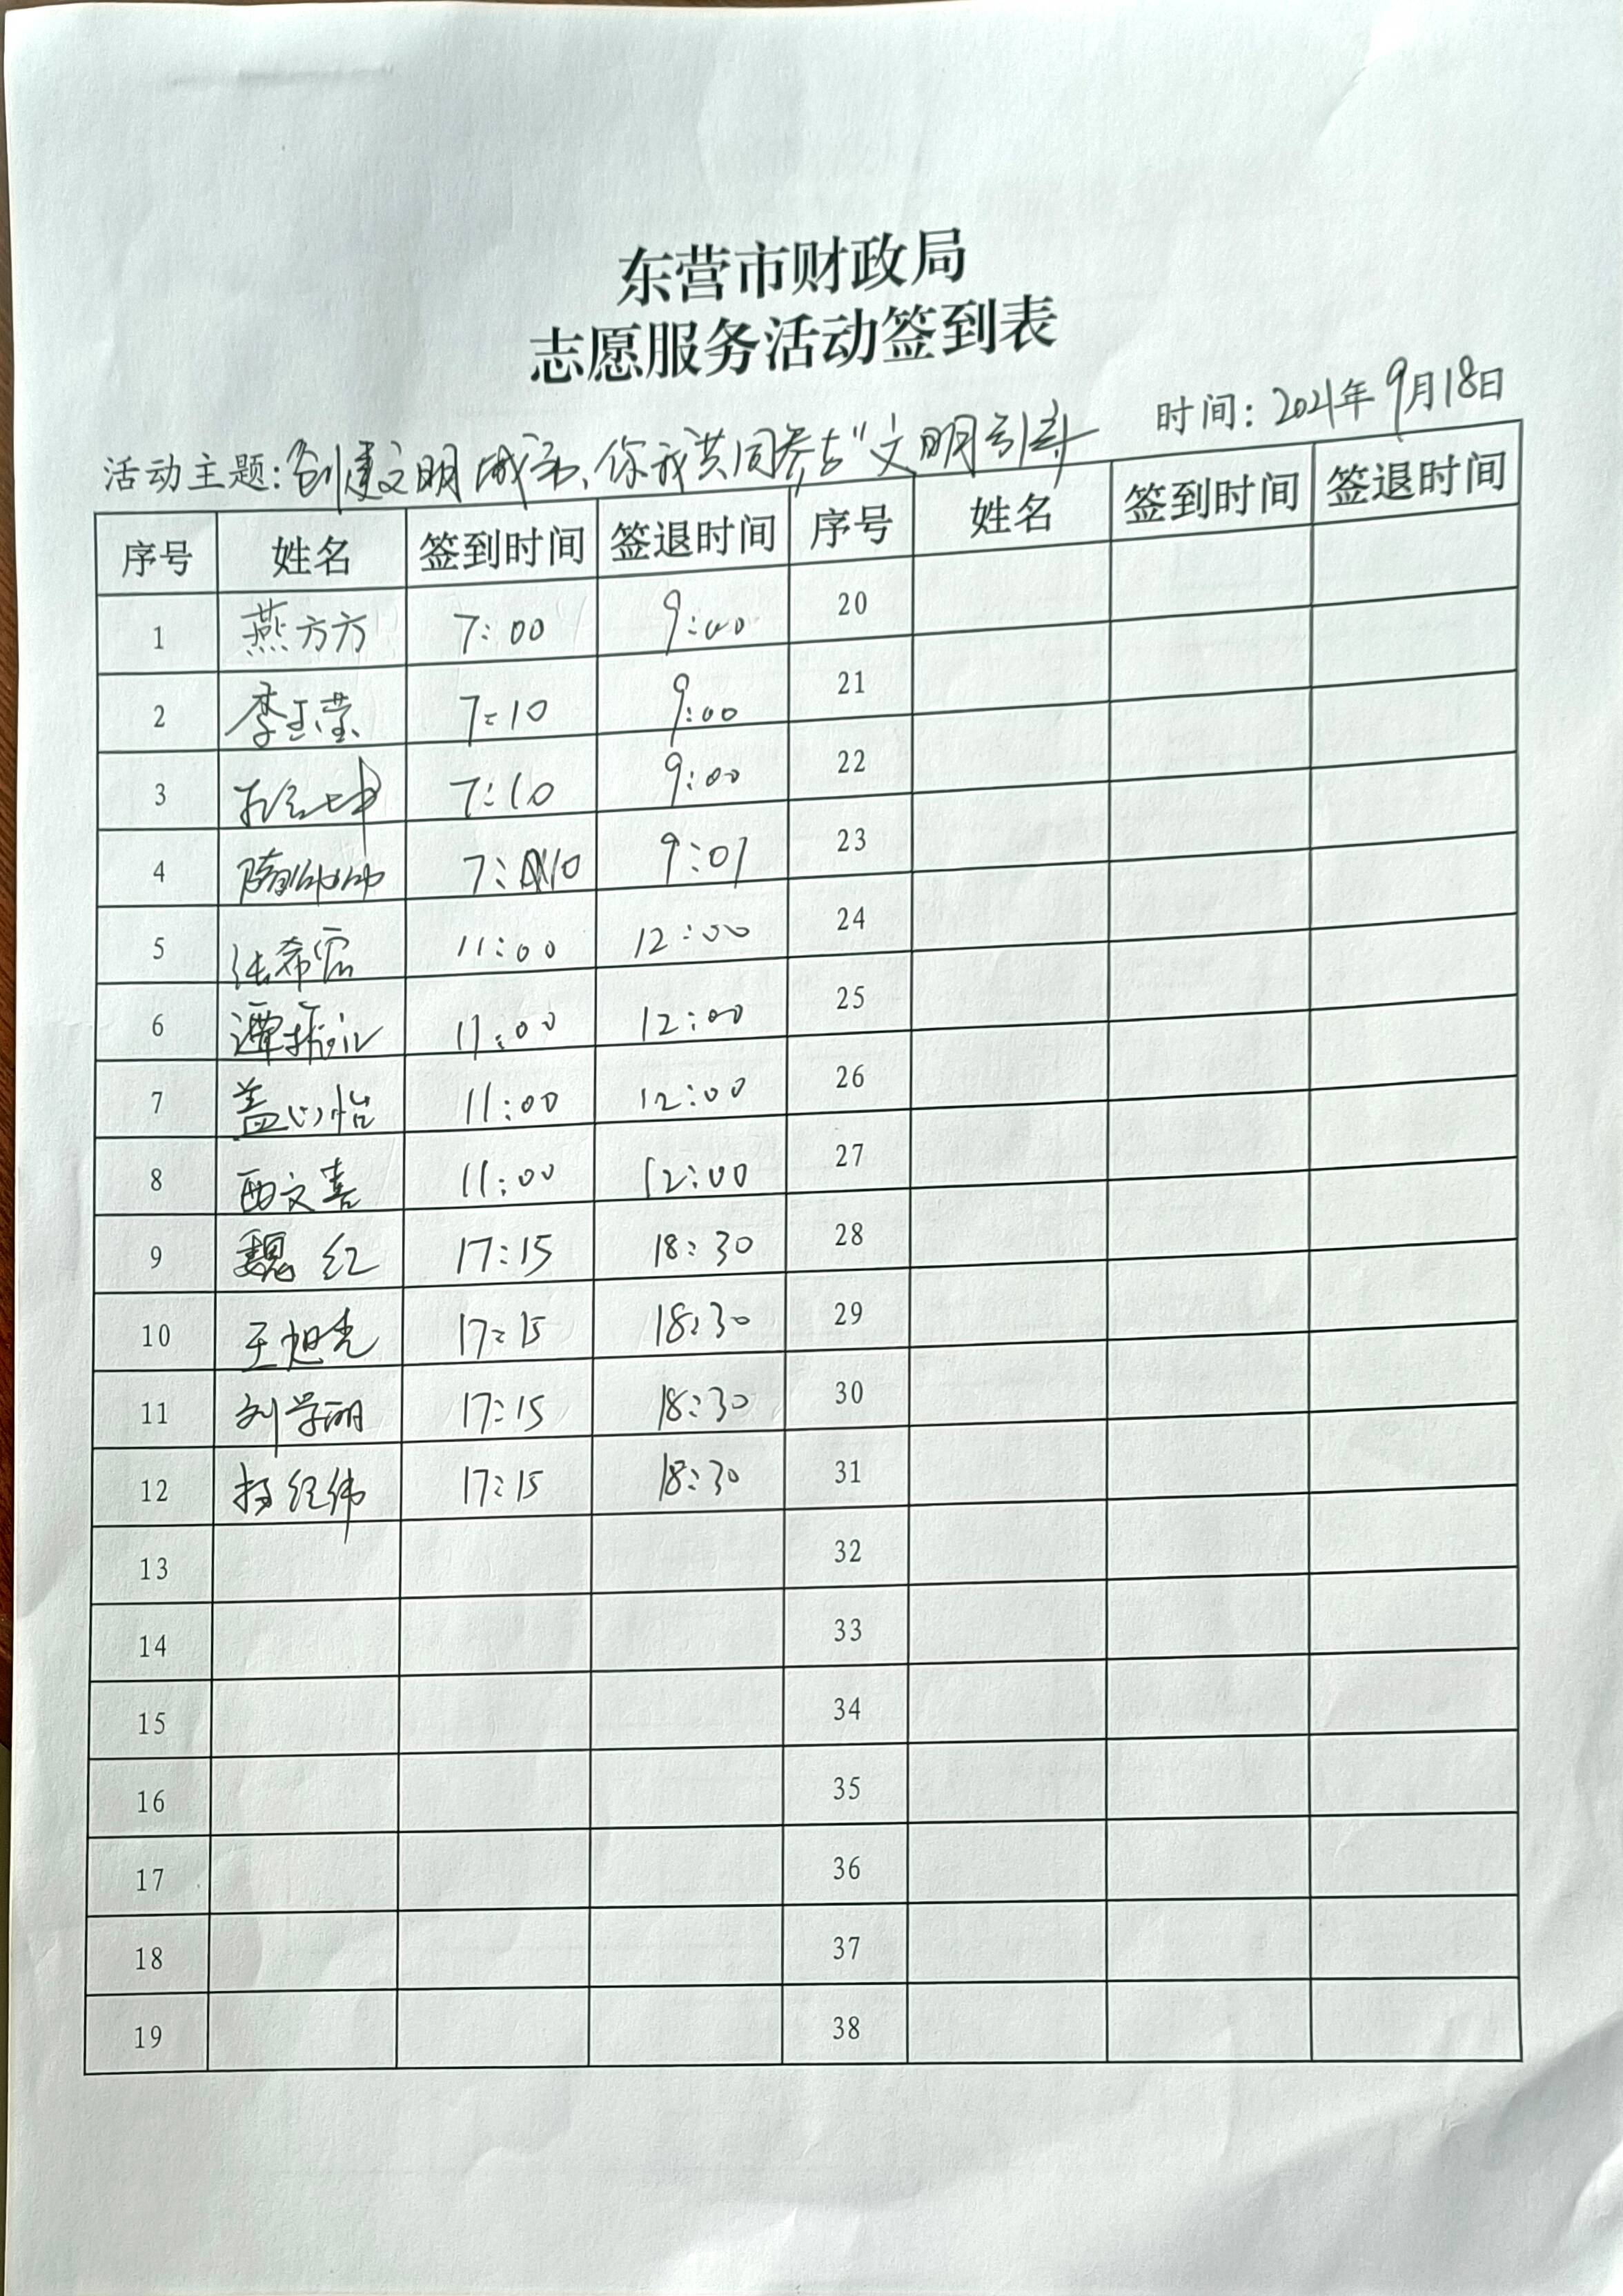 东营市财政局
志愿服务活动签到表
时间：2021年9月18日
活动主题：创建文明城市、你我共同参与"文明引导
序号 姓名 签到时间 签退时间 序号 姓名 签到时间 签退时间
1 燕方方 7:00 9:00 20
2 李玉莹 7:10 9:00 21
3 7:10 9:00 22
4 隋帅帅 7:10 9:01 23
5 张希 11:00 12:00 24
6 谭振江 11:00 12:00 25
7 盖心怡 11:00 12:00 26
8 西文喜 11:00 12:00 27
9 魏红 17:15 18:30 28
10 王旭光 17:15 18:30 29
11 刘学丽 17:15 18:30 30
12 经伟 17:15 18:30 31
13 32
14 33
15 34
16 35
17 36
18 37
19 38